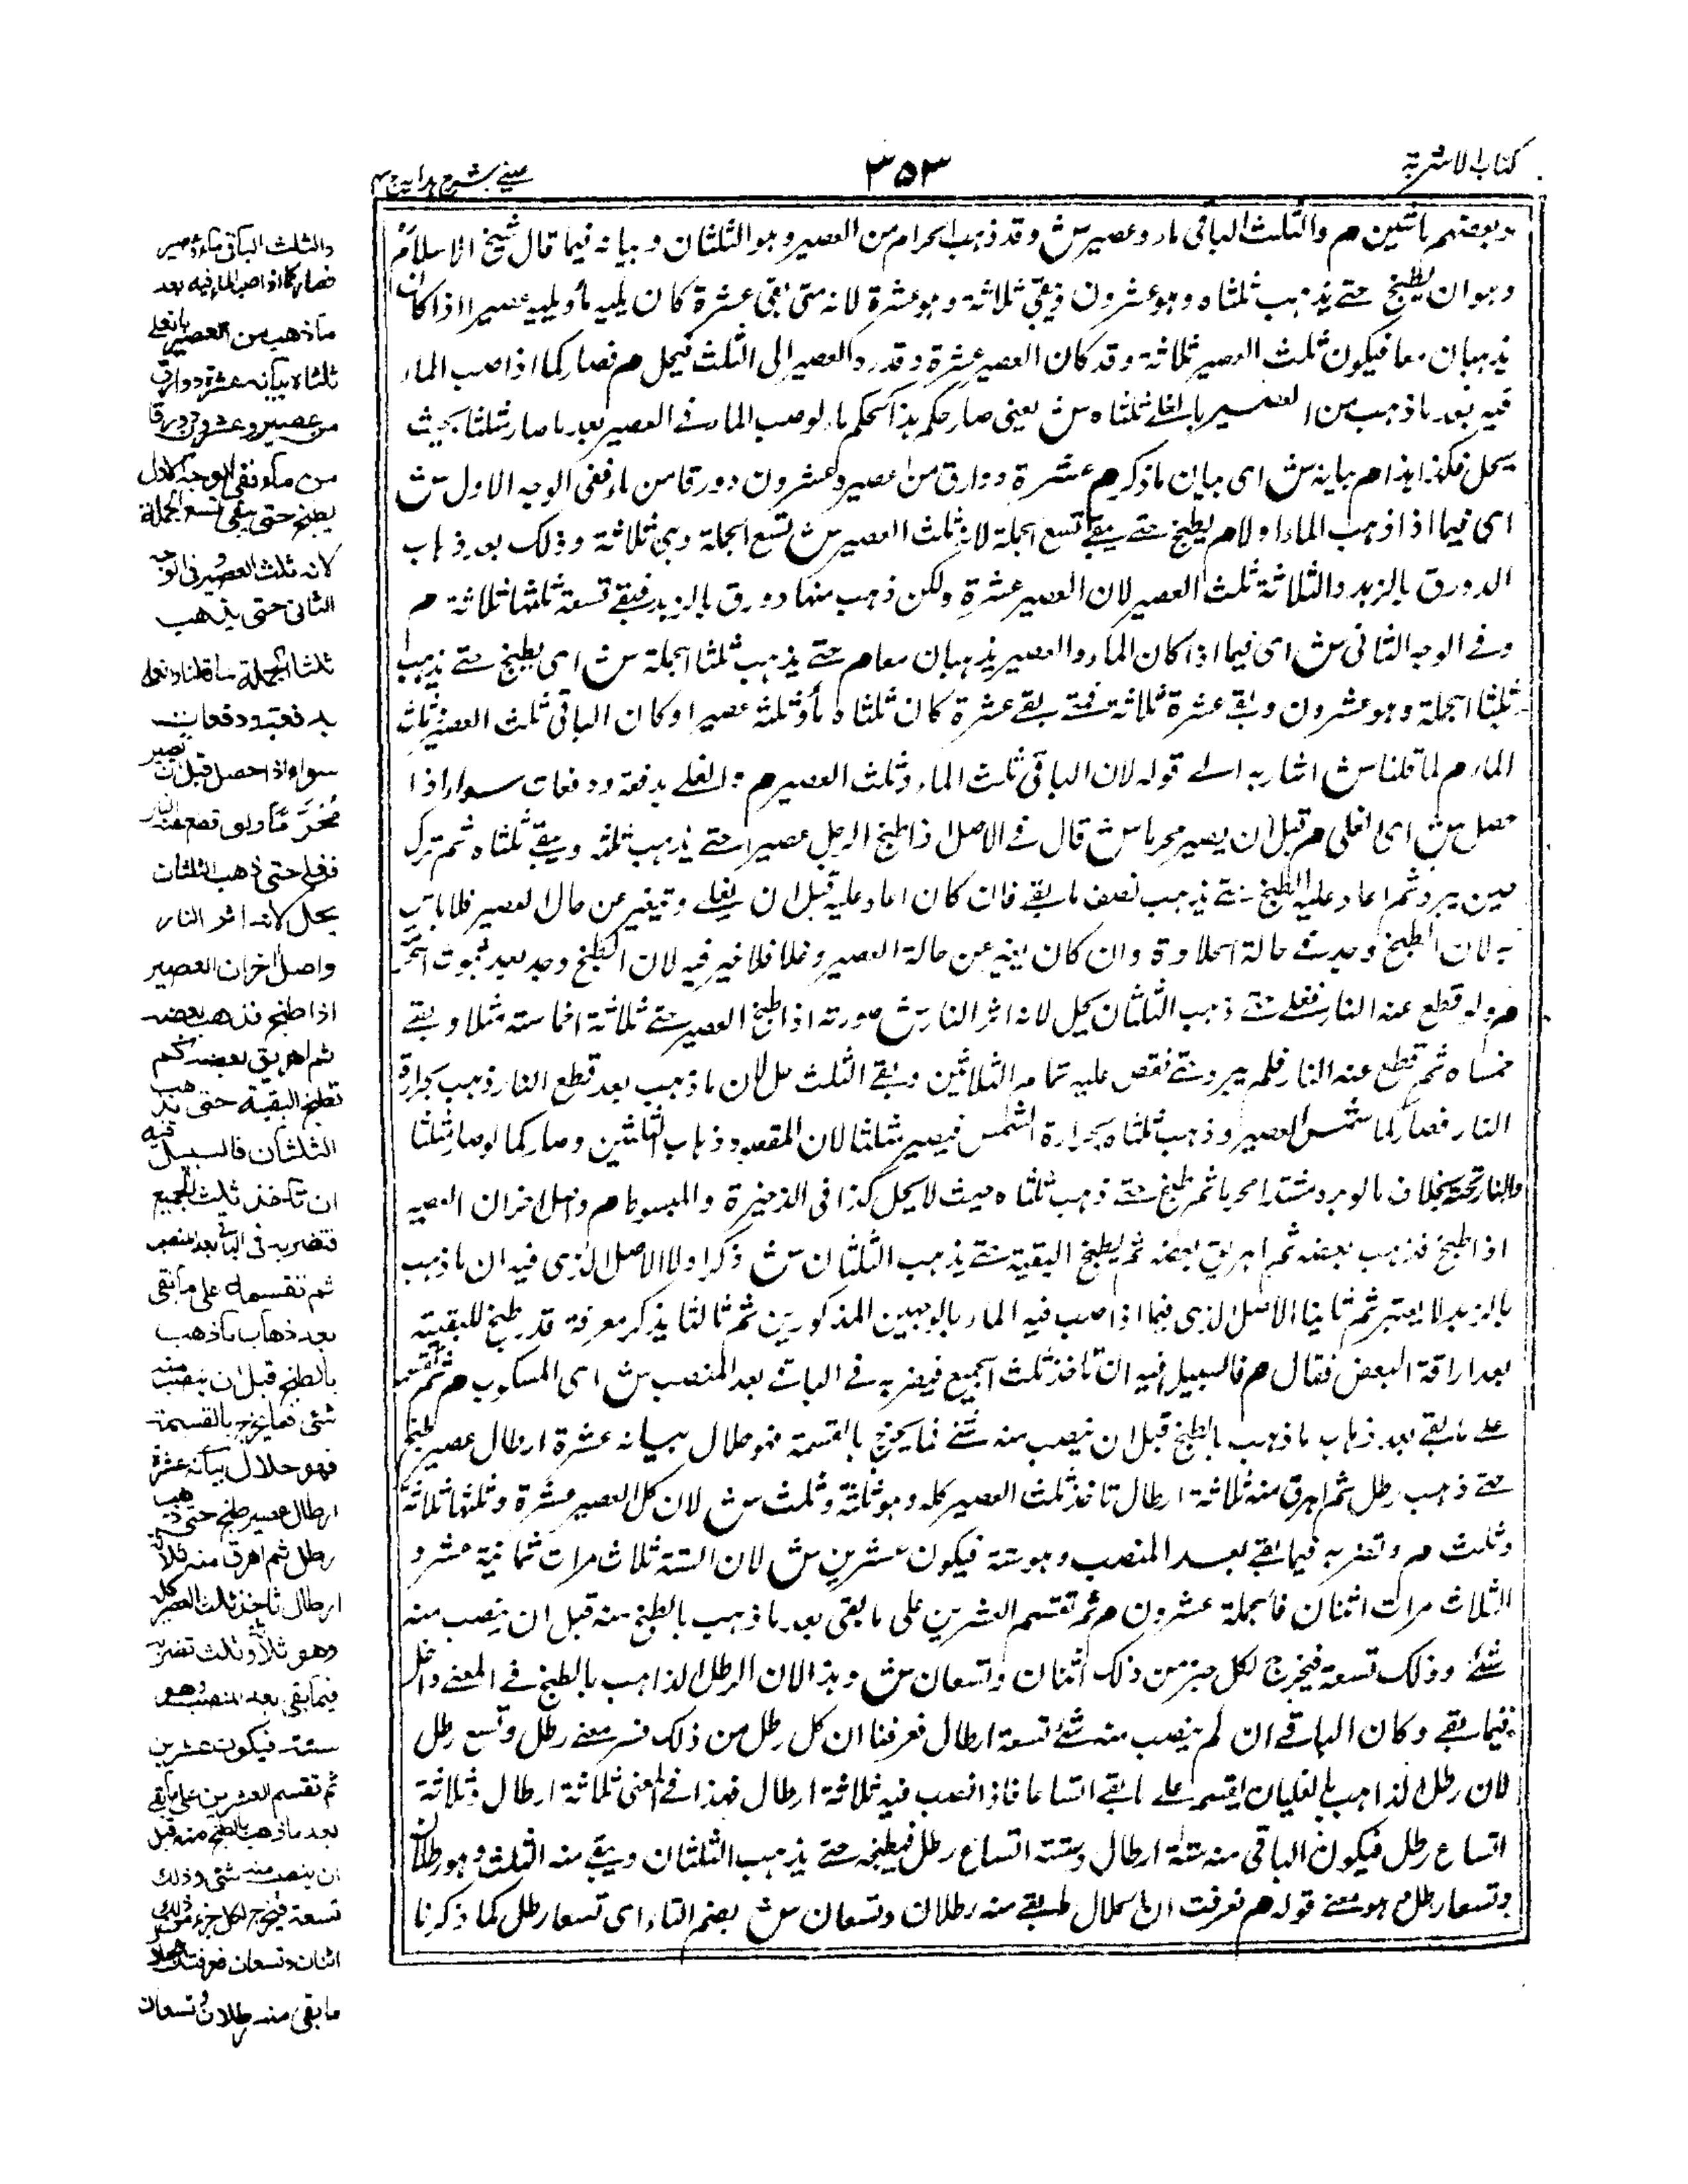 كتاب الاشربة
٣٥٣
عيني شرح هداية ج ٤
وبعضهم باثنين م والثلث الباقي ماء وعصير ش وقد ذهب الحرام من العصير وهو الثلثان وبيانه فيما قال شيخ الاسلام
وهو ان يطبخ حتے يذهب ثلثاه وهو عشرون فيبقى ثلاثة وهو عشرة لانه متى بقى عشرة كان ثلثيه ماء وثلثه عصيرا اذا كان
يذهبان معا فيكون ثلث العصير ثلاثة وقد كان العصير عشرة وقد رد العصير الى الثلث فيحل م فصار كما اذا صب الماء
فيه بعد ما ذهب من العصير بالغلے ثلثاه ش يعنى صار حكم هذا كحكم ما لو صب الماء فے العصير بعد ما صار مثلثا بحيث
يحل فكذا هذا م بيانه ش اى بيان ما ذكر م عشرة دوارق من عصير وعشرون دورقا من ماء ففى الوجه الاول ش
اى فيما اذا ذهب الماء اولا م يطبخ حتے يبقے تسع الجملة لانه ثلث العصير ش تسع الجملة وهى ثلاثة وذلك بعد ذهاب
الدورق بالزبد والثلاثة ثلث العصير لان العصير عشرة ولكن ذهب منها دورق بالزبد فبقے تسعة ثلثها ثلاثة م
وفے الوجه الثانى ش اى فيما اذا كان الماء والعصير يذهبان معا م حتے يذهب ثلثا الجملة ش اى يطبخ حتے يذهب
ثلثا الجملة وهو عشرون ويبقے عشرة ثلاثة فمتے بقے عشرة كان ثلثاه ماء وثلثه عصيرا وكان الباقى ثلث العصير وثلث
الماء م لما قلنا ش اشار به الے قوله لان الباقى ثلث الماء وثلث العصير م والغلے بدفعة ودفعات سواء اذا
حصل ش اى الغلى م قبل ان يصير محرما ش قال فے الاصل اذا طبخ الرجل عصيرا حتے يذهب ثلثه ويبقے ثلثاه ثم ترك
حين يبرد ثم اعاد عليه الطبخ حتے يذهب نصف ما بقے فان كان اعاد عليه قبل ان يغلے ويتغير عن حال العصير فلا باس
به لان الطبخ وجد فے حالة الحلاوة وان كان تغير عن حالة العصير وغلا فلا خير فيه لان الطبخ وجد بعد ثبوت الحر
م ولو قطع عنه النار فغلے حتے ذهب الثلثان يحل لانه اثر النار ش صورته اذا طبخ العصير حتے ثلاثة اخماسه مثلا وبقے
خمساه ثم قطع عنه النار فلم يبرد حتے نقص عليه تمامه الثلاثين وبقے الثلث حل لان ما ذهب بعد قطع النار ذهب بحرارة
النار فصار كما شمس العصير وذهب ثلثاه بحرارة الشمس فيصير مثلثا لان المقصود ذهاب الثلثين وصار كما لو صار مثلثا
والنار تحته بخلاف ما لو برد مشتدا محرما ثم طبخ حتے ذهب ثلثاه حيث لا يحل كذا فى الذخيرة والمبسوط م واصل اخر ان العصير
اذا طبخ فذهب بعضه ثم اهريق بعضه ثم يطبخ البقية حتے يذهب الثلثان ش ذكر اولا الاصل الذى فيه ان ما ذهب
بالزبد لا يعتبر ثم ثانيا الاصل الذى فيما اذا صب فيه الماء بالوجهين المذكورين ثم ثالثا يذكر معرفة قدر طبخ للبقية
بعد اراقة البعض فقال م فالسبيل فيه ان تاخذ ثلث الجميع فيضربه فے الباقے بعد المنصب ش اى المسكوب م ثم تقسمه
علے ما بقے بعد ذهاب ما ذهب بالطبخ قبل ان ينصب منه شئے فما يخرج بالقسمة فهو حلال بيانه عشرة ارطال عصير طبخ
حتے ذهب رطل ثم اهرق منه ثلاثة ارطال تاخذ ثلث العصير كله وهو ثلثة وثلث ش لان كل العصير عشرة وثلثها ثلاثة
وثلث م وتضربه فيما بقے بعد المنصب وهو ستة فيكون عشرين ش لان الستة ثلاث مرات ثمانية عشر و
الثلاث مرات اثنان فالجملة عشرون م ثم تقسم العشرين على ما بقى بعد ما ذهب بالطبخ منه قبل ان ينصب منه
شئے وذلك تسعة فيخرج لكل جزء من ذلك اثنان وتسعان ش وهذا لان الرطل الذاهب بالطبخ فے المعنے داخل
فيما بقے وكان الباقے ان لم ينصب منه شئے تسعة ارطال فعرفنا ان كل رطل من ذلك فسر معنے رطل وتسع رطل
لان رطل الذاهب بالغليان يقسم علے ما بقے اتساعا فاذا انصب فيه ثلاثة ارطال فهذا فے المعنى ثلاثة ارطال وثلاثة
اتساع رطل فيكون الباقى منه ستة ارطال وستة اتساع رطل فيطبخه حتے يذهب الثلثان ويبقے منه الثلث وهو رطلان
وتسعا رطل م هو معنے قوله م فعرفت ان الحلال ما بقے منه رطلان وتسعان ش بضم التاء اى تسعا رطل كما ذكرنا
والثلث الباقى ماء وعصير
فصار كما اذا صب الماء فيه بعد
ما ذهب من العصير بالغلى
ثلثاه بيانه عشرة دوارق
من عصير وعشرون دورقا
من ماء ففى الوجه الاول
يطبخ حتى يبقى تسع الجملة
لانه ثلث العصير وفى الوجه
الثانى حتى يذهب
ثلثا الجملة لما قلنا والغلى
بدفعة ودفعات
سواء اذا حصل قبل ان يصير
محرما ولو قطع عنه النار
فغلى حتى ذهب الثلثان
يحل لانه اثر النار
واصل اخر ان العصير
اذا طبخ فذهب بعضه
ثم اهريق بعضه كم
تطبخ البقية حتى يذهب
الثلثان فالسبيل فيه
ان تاخذ ثلث الجميع
فتضربه فى الباقى بعد المنصب
ثم تقسمه على ما بقى
بعد ذهاب ما ذهب
بالطبخ قبل ان ينصب منه
شئ فما يخرج بالقسمة
فهو حلال بيانه عشرة
ارطال عصير طبخ حتى ذهب
رطل ثم اهرق منه ثلاثة
ارطال تاخذ ثلث العصير كله
وهو ثلاثة وثلث تضربه
فيما بقى بعد المنصب وهو
ستة فيكون عشرين
ثم تقسم العشرين على ما بقى
بعد ما ذهب بالطبخ منه قبل
ان ينصب منه شئ وذلك
تسعة فيخرج لكل جزء من ذلك
اثنان وتسعان فعرفت ان الحلال
ما بقى منه رطلان وتسعان